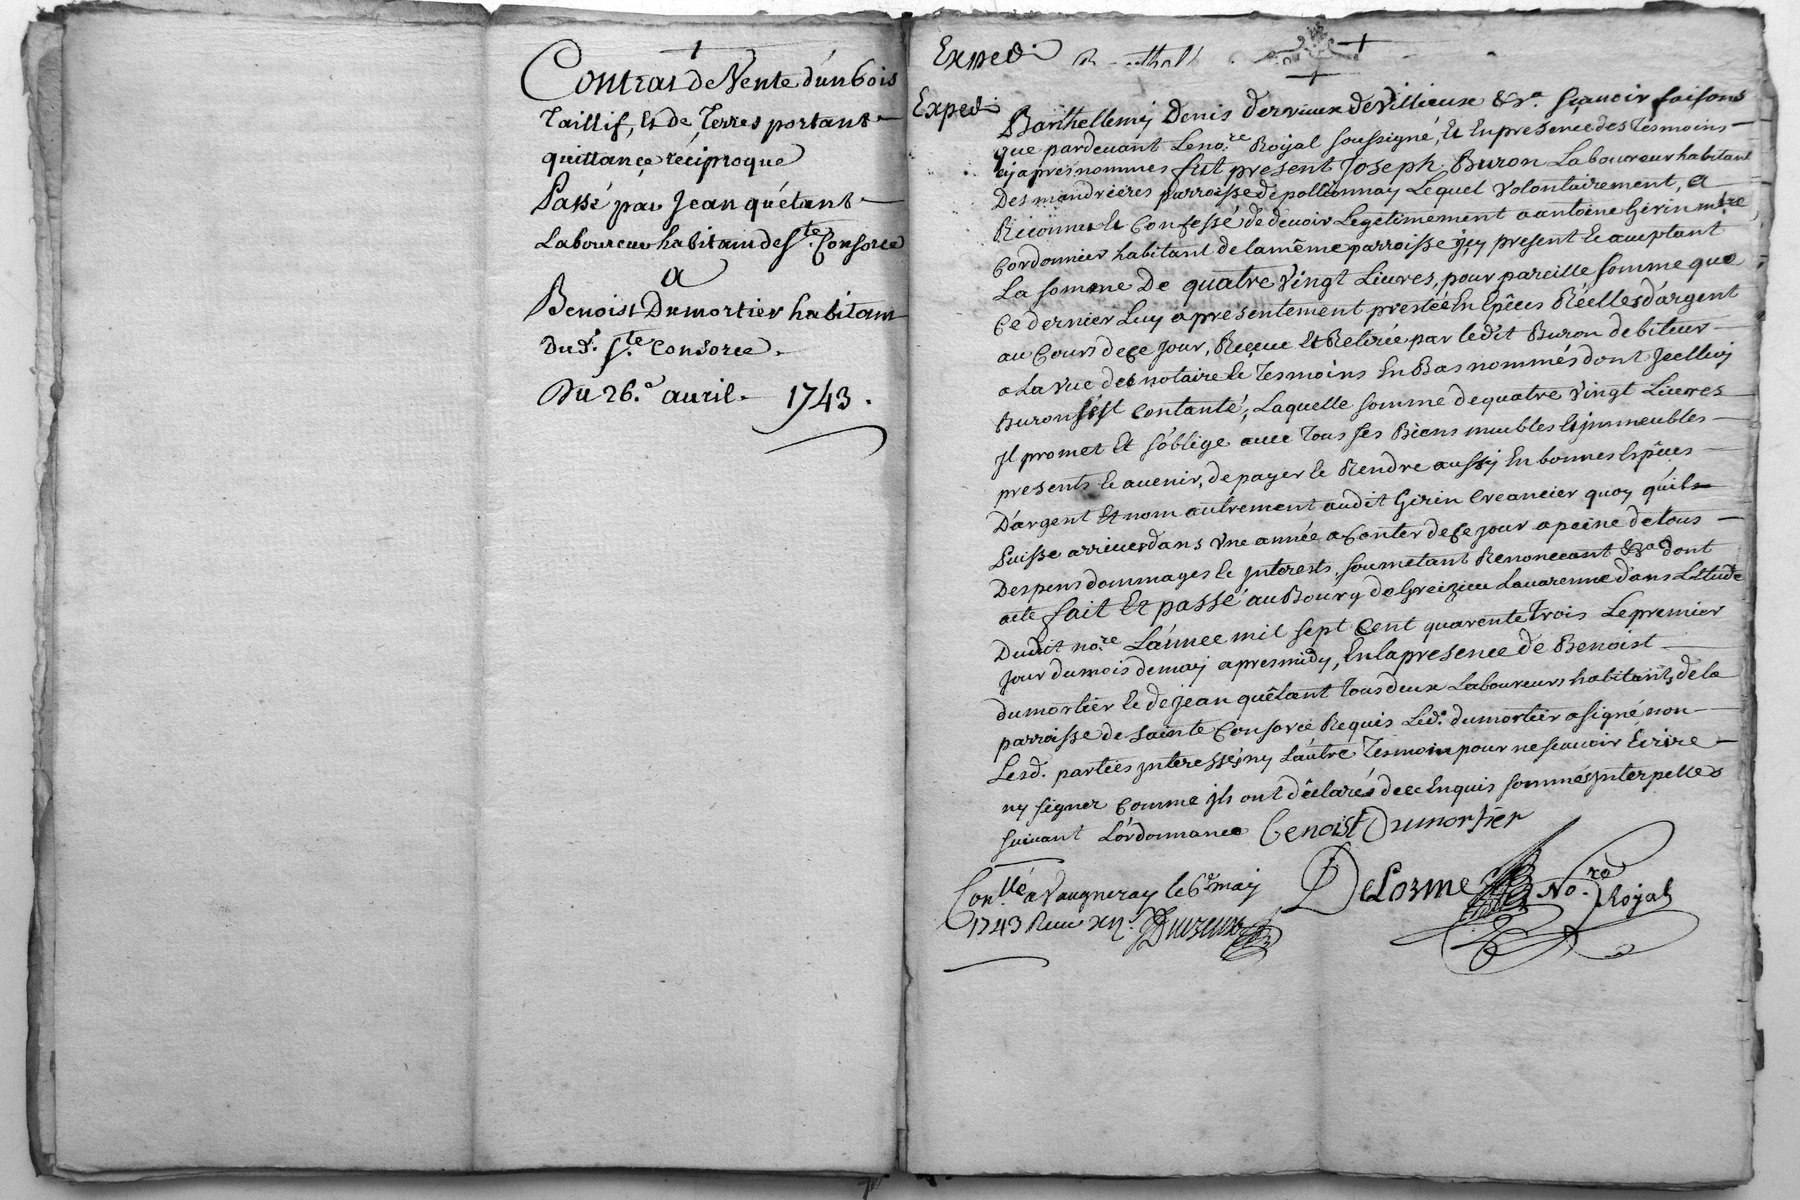 Contrat de Vente d'un bois
Taillif, Et de Terres portant
quittance réciproque
Passé par Jean quétant
Laboureur habitant de Ste Consorce
a
Benoist Dumortier habitant
Dud. Ste Consorce
Du 26e auril 1743.
Exped
Exped
Barthellemy Denis Dervieux de Villieux &ra. sçauoir faisons
que pardeuant Le nore Royal soussigné, Et En presence des Tesmoins
cy apres nommés fut present Joseph Buron Laboureur habitant
Des mandrières parroisse de pollionnay Lequel volontairement, a
Reconnu Et Confessé de deuoir Legitimement a antoine Girin mtre
Cordonnier habitant de la même parroisse jcy present Et aceptant
La somme De quatre Vingt Liures, pour pareille somme que
Ce dernier Luy a presentement prestée En Espêces Réelles d'argent
au Cours de Ce jour, Reçeue Et Retirée par ledit Buron debiteur
a La vue des notaire Et Tesmoins En Bas nommés dont Jcelluy
Buron s'est Contanté, Laquelle somme de quatre Vingt Liures
Jl promet Et s'oblige auec Tous ses Biens meubles Et jmmeubles
presents Et auenir, de payer Et Rendre aussy En bonnes Espêces
D'argent Et nom autrement audit Girin Creancier quoy qu'il
Puisse arriuer dans vne année a Conter de Ce jour a peine de tous
Despens dommages Et jnterests, soumetant Renonceant &ra dont
acte fait Et passé au Bourg de Greizieu Lauarenne dans L'Etude
Dudit nore L'année mil sept Cent quarente Trois Le premier
Jour du mois de may apres midy, En la presence de Benoist
dumortier Et de jean quêtant Tous deux Laboureurs habitants de la
parroisse de Sainte Consorce Requis Led. dumortier a signé non
Lesd. parties jnteressés ny L'autre Tesmoin pour ne scauoir Ecrire
ny signer Comme jls ont déclarés de ce Enquis sommés jnterpellés
suiuant L'ordonnance Benoist Dumortier
Conllé a Vaugneray le 6e may
1743 Reçu
DeLorme Nore Royal